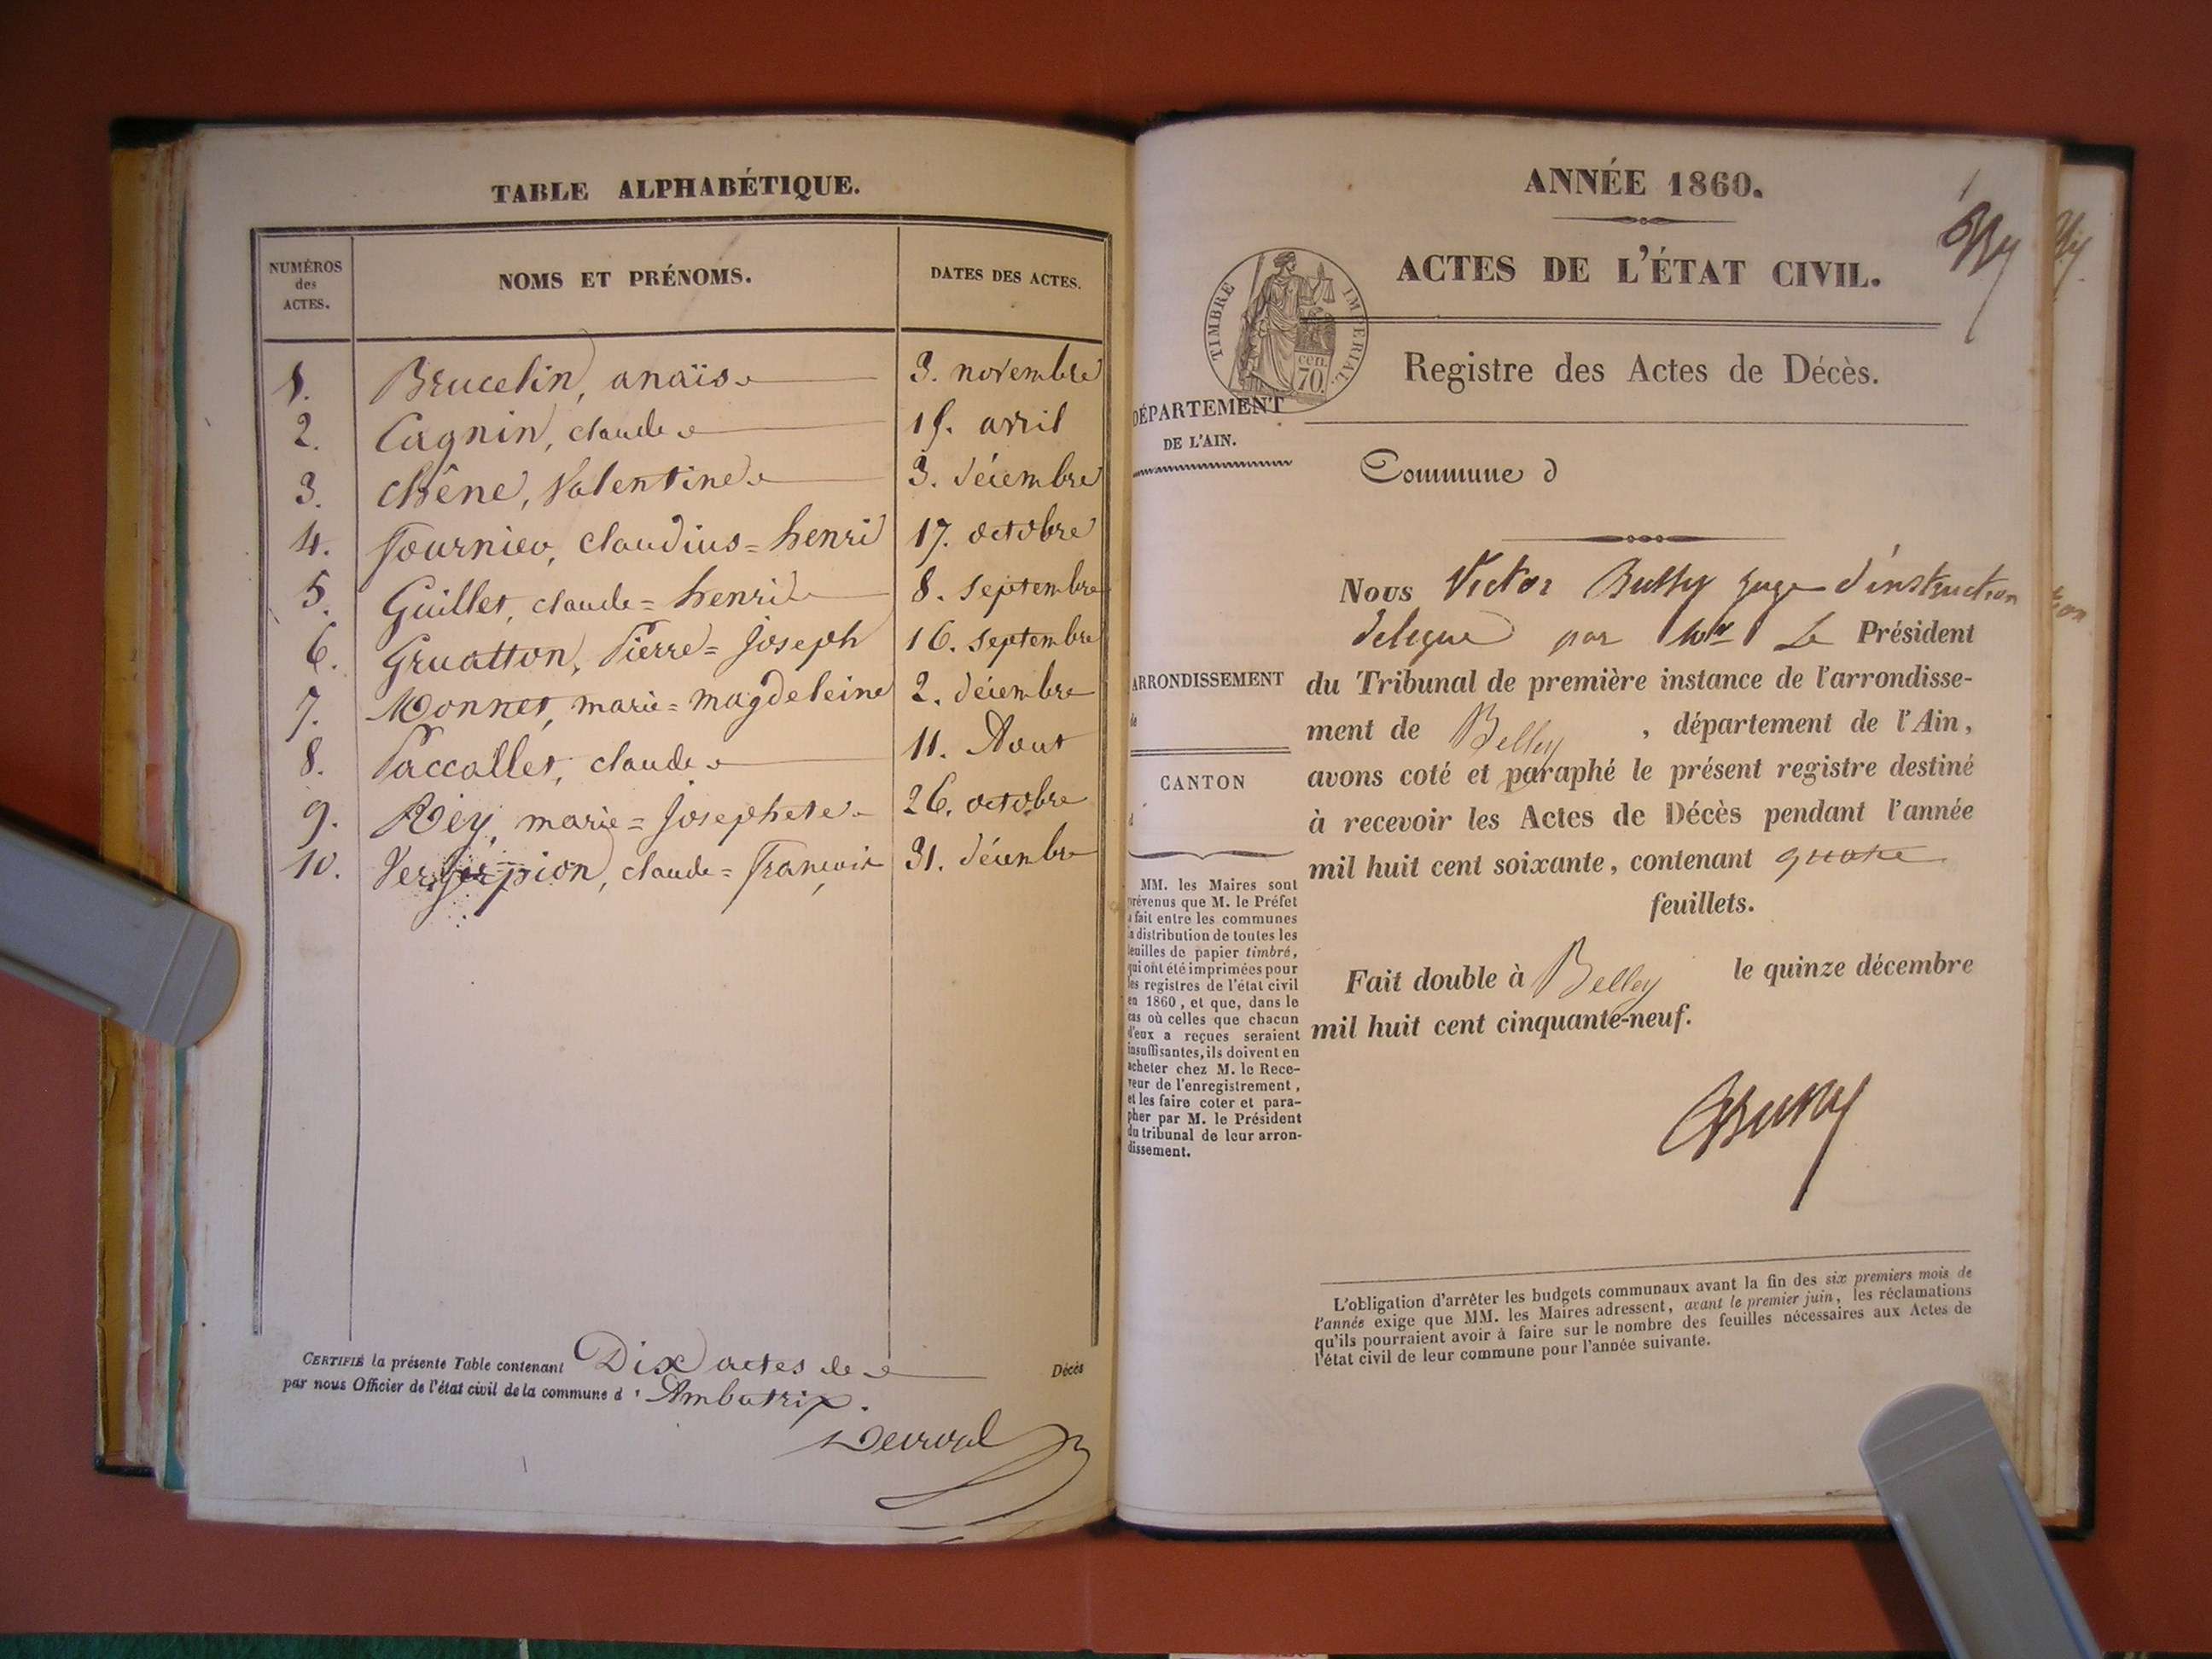 TABLE ALPHABÉTIQUE.
NUMÉROS des ACTES.
NOMS ET PRÉNOMS.
DATES DES ACTES.
1. Brucelin, anaïs 3. novembre
2. Cagnin, claude 15. avril
3. Chêne, Valentine 3. décembre
4. fournier, claudius=henri 17. octobre
5. Guillet, claude=henri 8. septembre
6. Gruatton, Pierre=joseph 16. septembre
7. Monnet, marie=magdeleine 2. décembre
8. Paccallet, claude 11. Aout
9. Rey, marie=josephete 26. octobre
10. pion, claude=françois 31. décembre
CERTIFIÉ la présente Table contenant Dix actes de Décès
par nous Officier de l'état civil de la commune d' Ambutrix.
ANNÉE 1860.
ACTES DE L'ÉTAT CIVIL.
TIMBRE IMPÉRIAL.
70 cen.
Registre des Actes de Décès.
DÉPARTEMENT
DE L'AIN.
Commune d
ARRONDISSEMENT
de
CANTON
d
MM. les Maires sont
prévenus que M. le Préfet
a fait entre les communes
la distribution de toutes les
feuilles de papier timbré,
qui ont été imprimées pour
les registres de l'état civil
en 1860, et que, dans le
cas où celles que chacun
d'eux a reçues seraient
insuffisantes, ils doivent en
acheter chez M. le Rece-
veur de l'enregistrement,
et les faire coter et para-
pher par M. le Président
du tribunal de leur arron-
dissement.
Nous Victor juge d'instruction
délégué par Mr Le Président
du Tribunal de première instance de l'arrondisse-
ment de Belley, département de l'Ain,
avons coté et paraphé le présent registre destiné
à recevoir les Actes de Décès pendant l'année
mil huit cent soixante, contenant quatre
feuillets.
Fait double à Belley le quinze décembre
mil huit cent cinquante-neuf.
L'obligation d'arrêter les budgets communaux avant la fin des six premiers mois de
l'année exige que MM. les Maires adressent, avant le premier juin, les réclamations
qu'ils pourraient avoir à faire sur le nombre des feuilles nécessaires aux Actes de
l'état civil de leur commune pour l'année suivante.